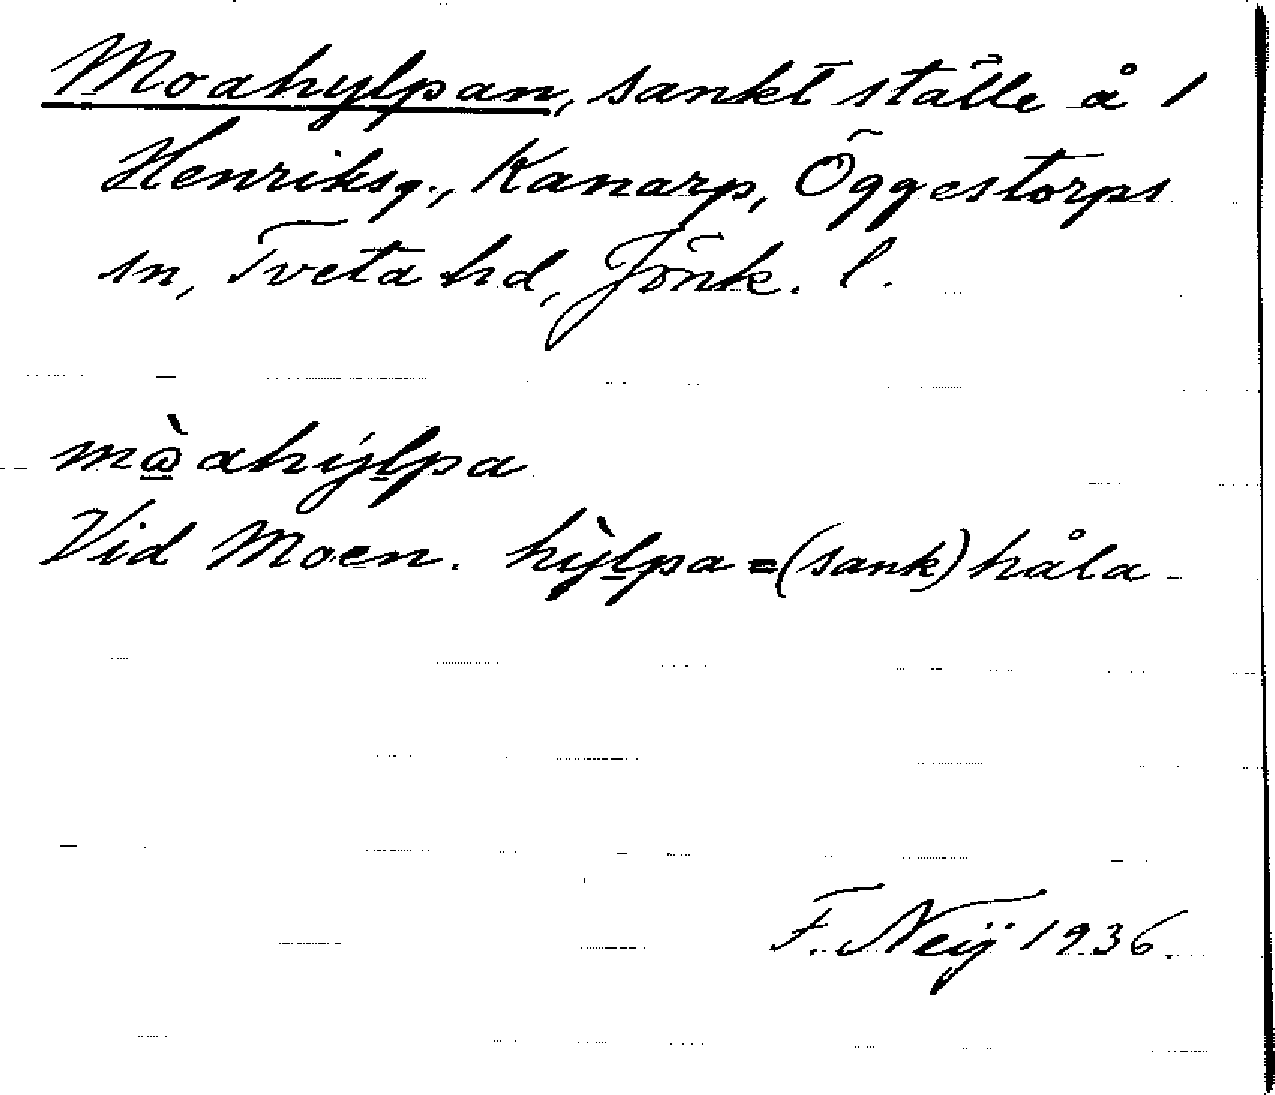 Moahylpan, sankt ställe å 1
Henriksg., Kanarp, Öggestorps
sn, Tveta hd, Jönk. l.
mὼahýlpa
Vid Moen. hỳlpa = (sank) håla
F. Neij 1936.